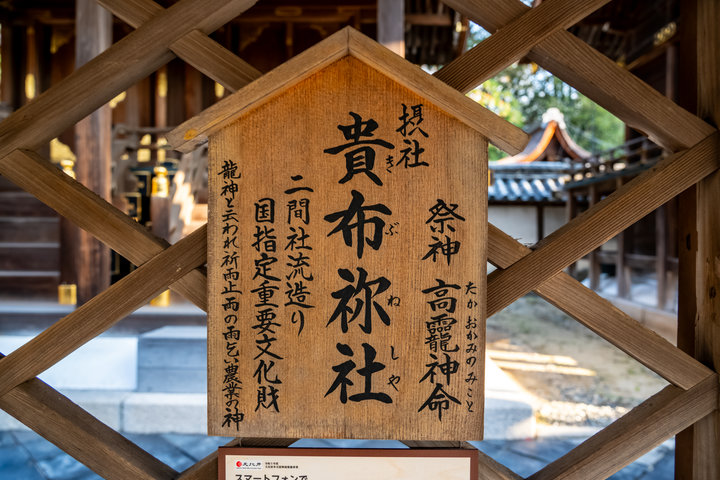 摂社
貴布祢社
きぶねしゃ
祭神 高龗神命
たかおかみのみこと
二間社流造り
国指定重要文化財
龍神と云われ祈雨止雨の雨乞い農業の神
スマートフォンで